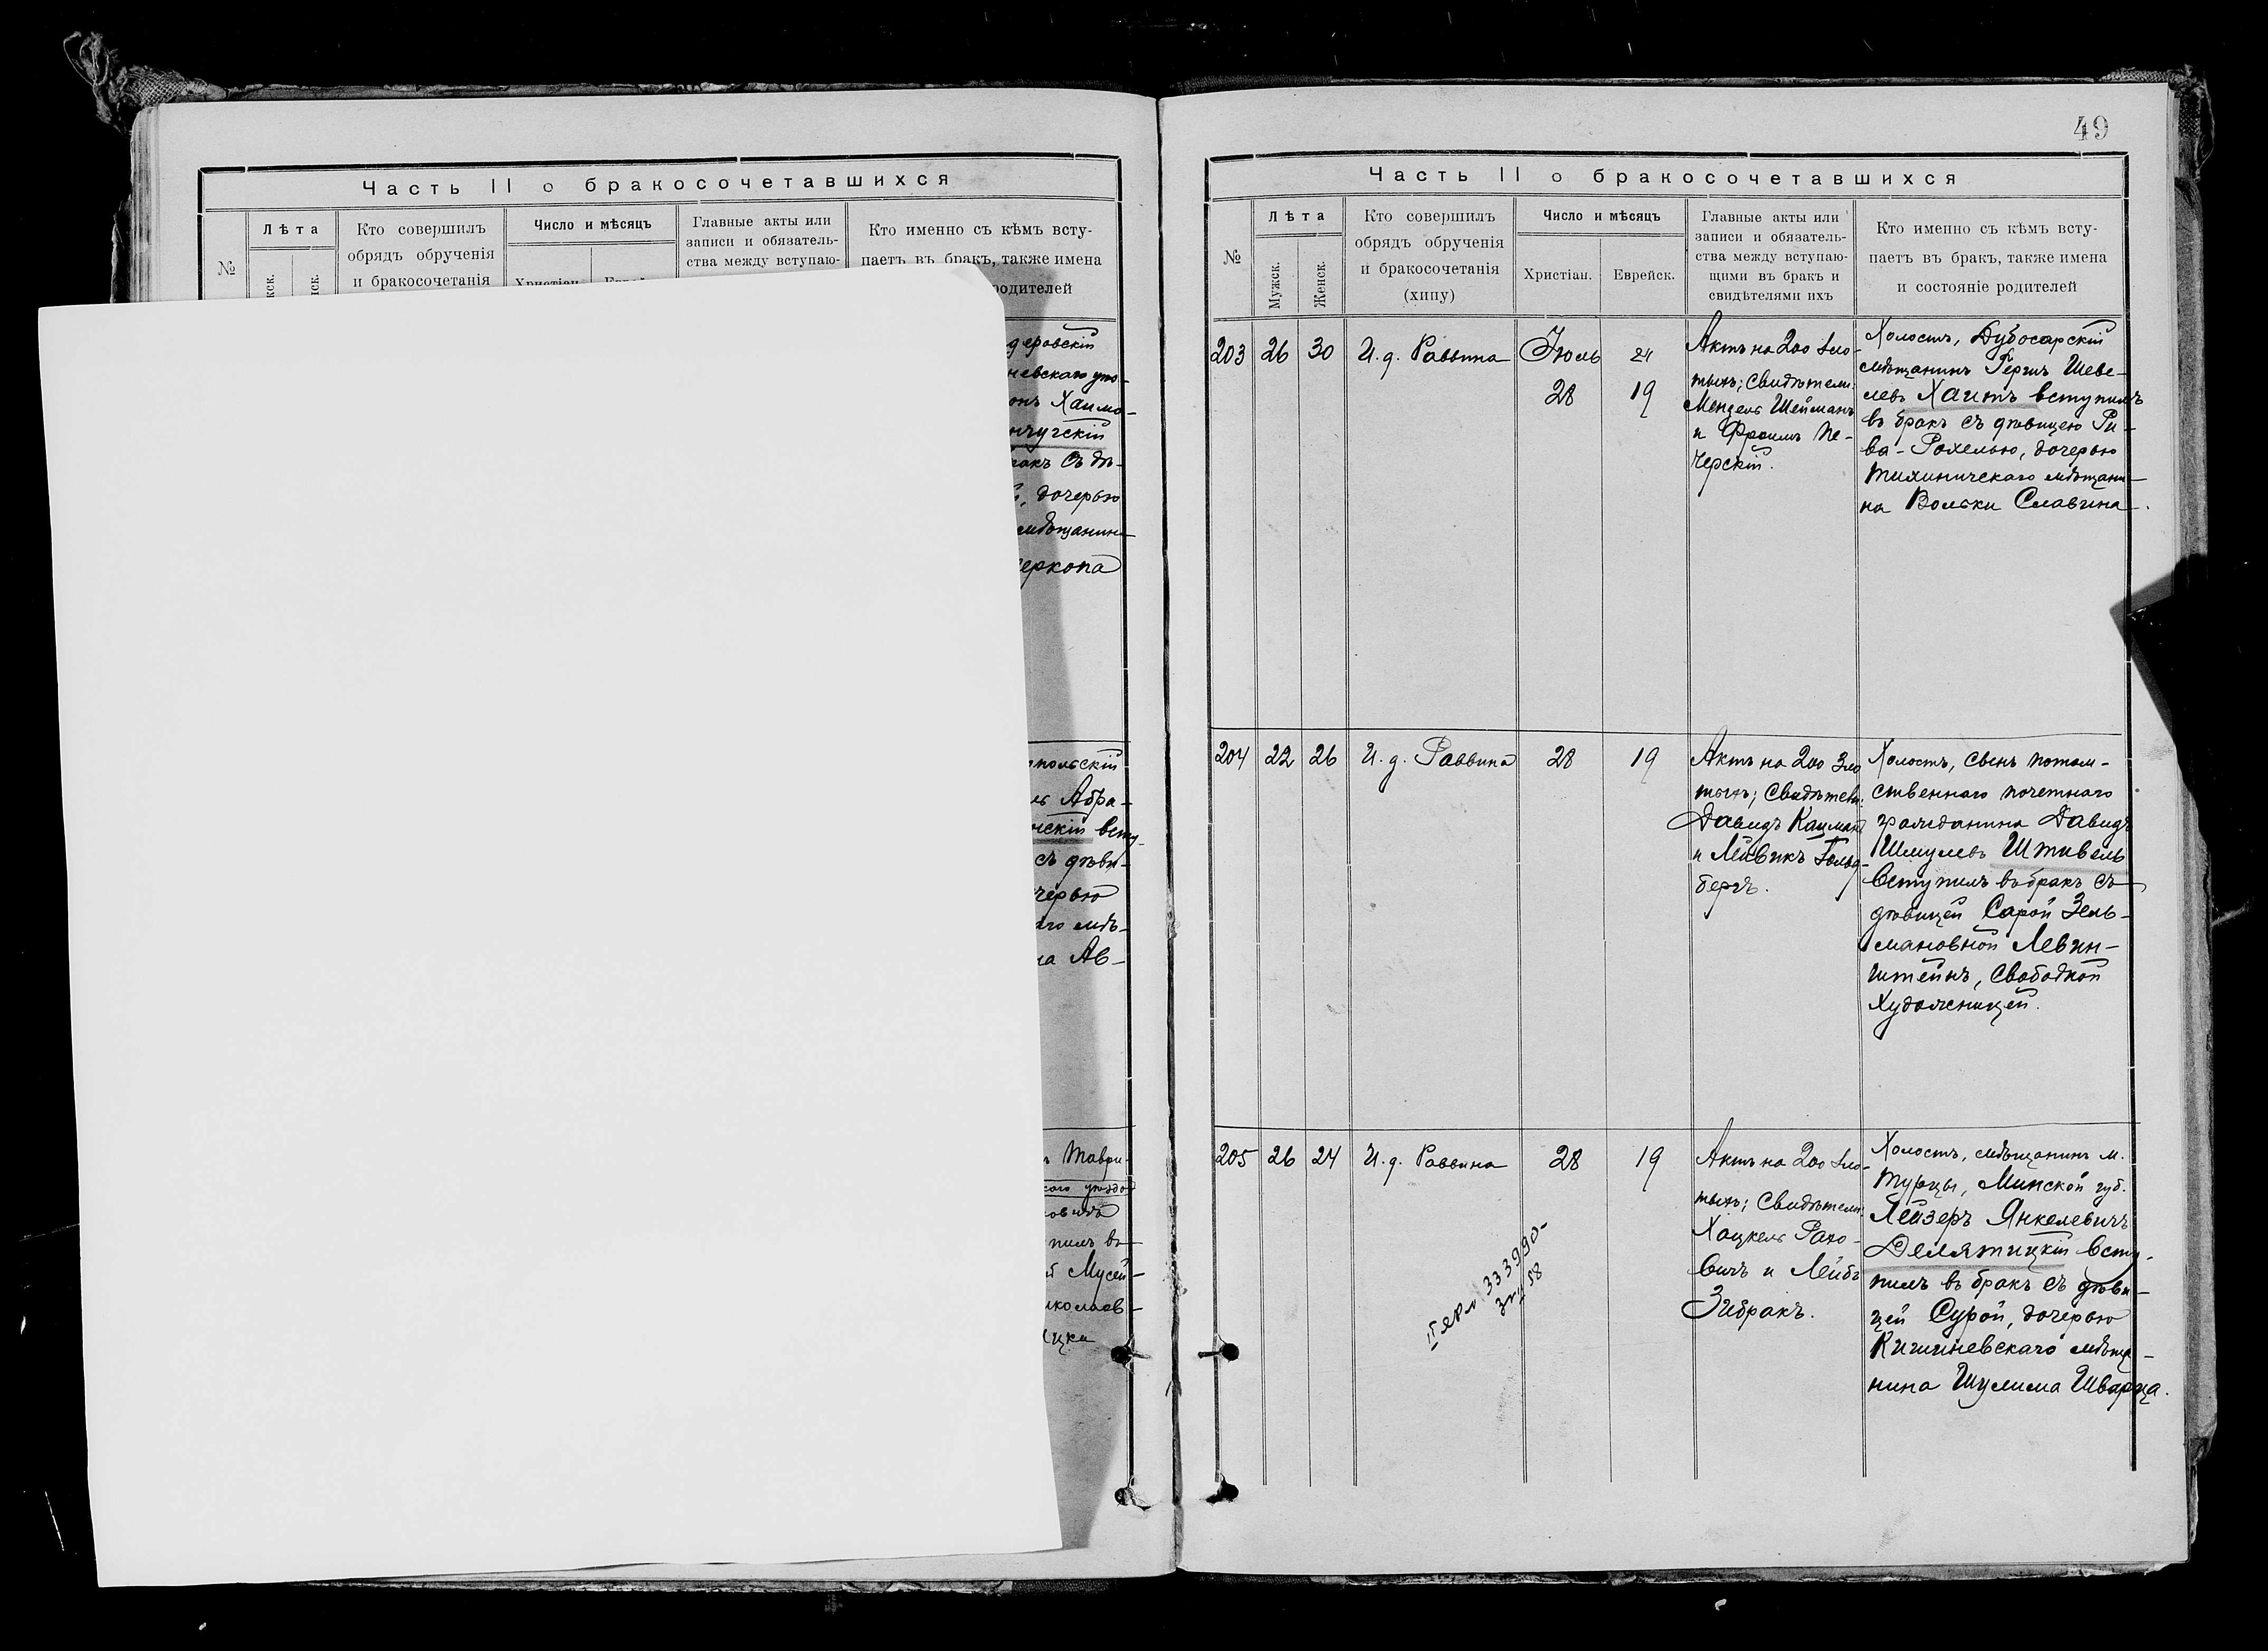 Часть II о бракосочетавшихся
№
Лѣта
Кто совершилъ
обрядъ обрученія
и бракосочетанія
Число и мѣсяцъ
Главные акты или
записи и обязатель-
ства между вступаю-
Кто именно съ кѣмъ всту-
паетъ въ бракъ, также имена
родителей
Хаимо-
дочерью
мѣщанина
Абра-
съ дѣви-
на Ав-
Таври-
Мусей-
49
Часть II о бракосочетавшихся
№
Лѣта
Мужск.
Женск.
Кто совершилъ
обрядъ обрученія
и бракосочетанія
(хипу)
Число и мѣсяцъ
Христіан.
Еврейск.
Главные акты или
записи и обязатель-
ства между вступаю-
щими въ бракъ и
свидѣтелями ихъ
Кто именно съ кѣмъ всту-
паетъ въ бракъ, также имена
и состояніе родителей
203
26
30
И. д. Раввина
Іюль
28
19
Актъ на 200 зло-
тыхъ; Свидѣтели:
Мендель Шейманъ
и Фроимъ Пе-
черскій.
Холостъ, Дубосарскій
мѣщанинъ Гершъ Шеве-
левъ Хаитъ вступилъ
въ бракъ съ дѣвицею Ри-
ва-Рохелью, дочерью
мѣщани-
на Вольки Славина.
204
22
26
И. д. Раввина
28
19
Актъ на 200 зло
тыхъ; Свидѣтели:
Давидъ Кацманъ
и Лейвикъ Гольд-
бергъ.
Холостъ, сынъ потом-
ственнаго почетнаго
гражданина Давидъ
Шмулевъ Штивель
вступилъ въ бракъ съ
дѣвицей Сарой Зель-
мановной Левин-
штейнъ, Свободной
Художницей.
205
26
24
И. д. Раввина
28
19
Актъ на 200 зло-
тыхъ; Свидѣтели:
Хацкель Рахо-
вичъ и Лейбъ
Зибракъ.
Холостъ, мѣщанинъ м.
Турцы, Минской губ.
Лейзеръ Янкелевичъ
Делятицкій всту-
пилъ въ бракъ съ дѣви-
цей Сурой, дочерью
Кишиневскаго мѣща-
нина Шулима Шварца.
333990-